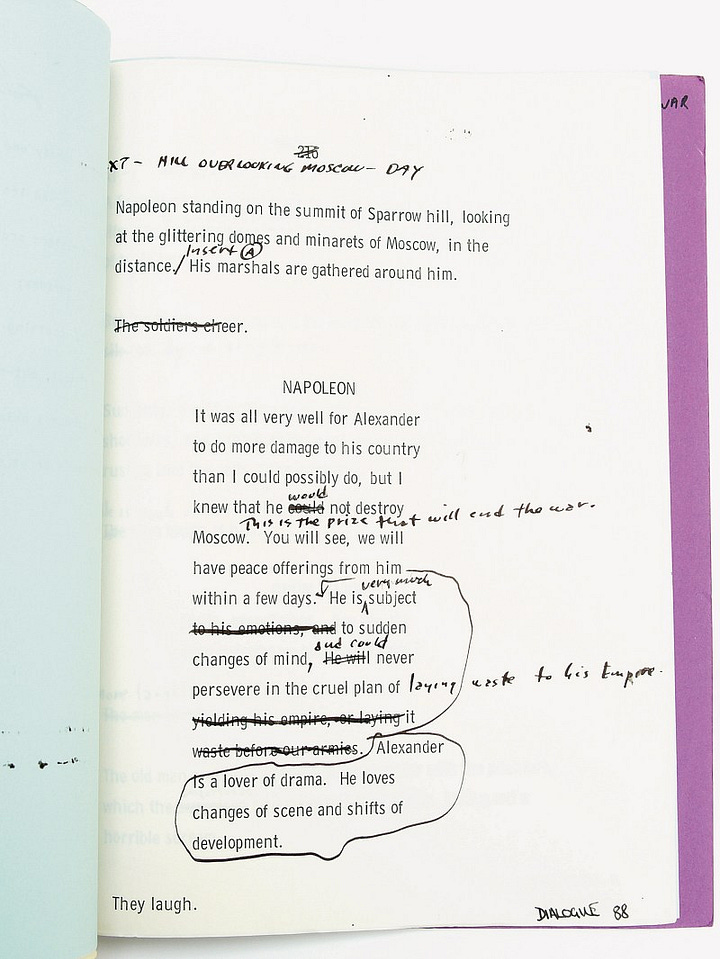 WAR
218
XT - HILL OVERLOOKING MOSCOW - DAY
Napoleon standing on the summit of Sparrow hill, looking
at the glittering domes and minarets of Moscow, in the
Insert A
distance./ His marshals are gathered around him.
The soldiers cheer.
NAPOLEON
It was all very well for Alexander
to do more damage to his country
than I could possibly do, but I
would
knew that he could not destroy
This is the prize that will end the war.
Moscow. You will see, we will
have peace offerings from him
very much
within a few days. He is subject
to his emotions, and to sudden
and could
changes of mind, He will never
persevere in the cruel plan of laying waste to his Empire.
yielding his empire, or laying it
waste before our armies. Alexander
is a lover of drama. He loves
changes of scene and shifts of
development.
They laugh.
DIALOGUE 88